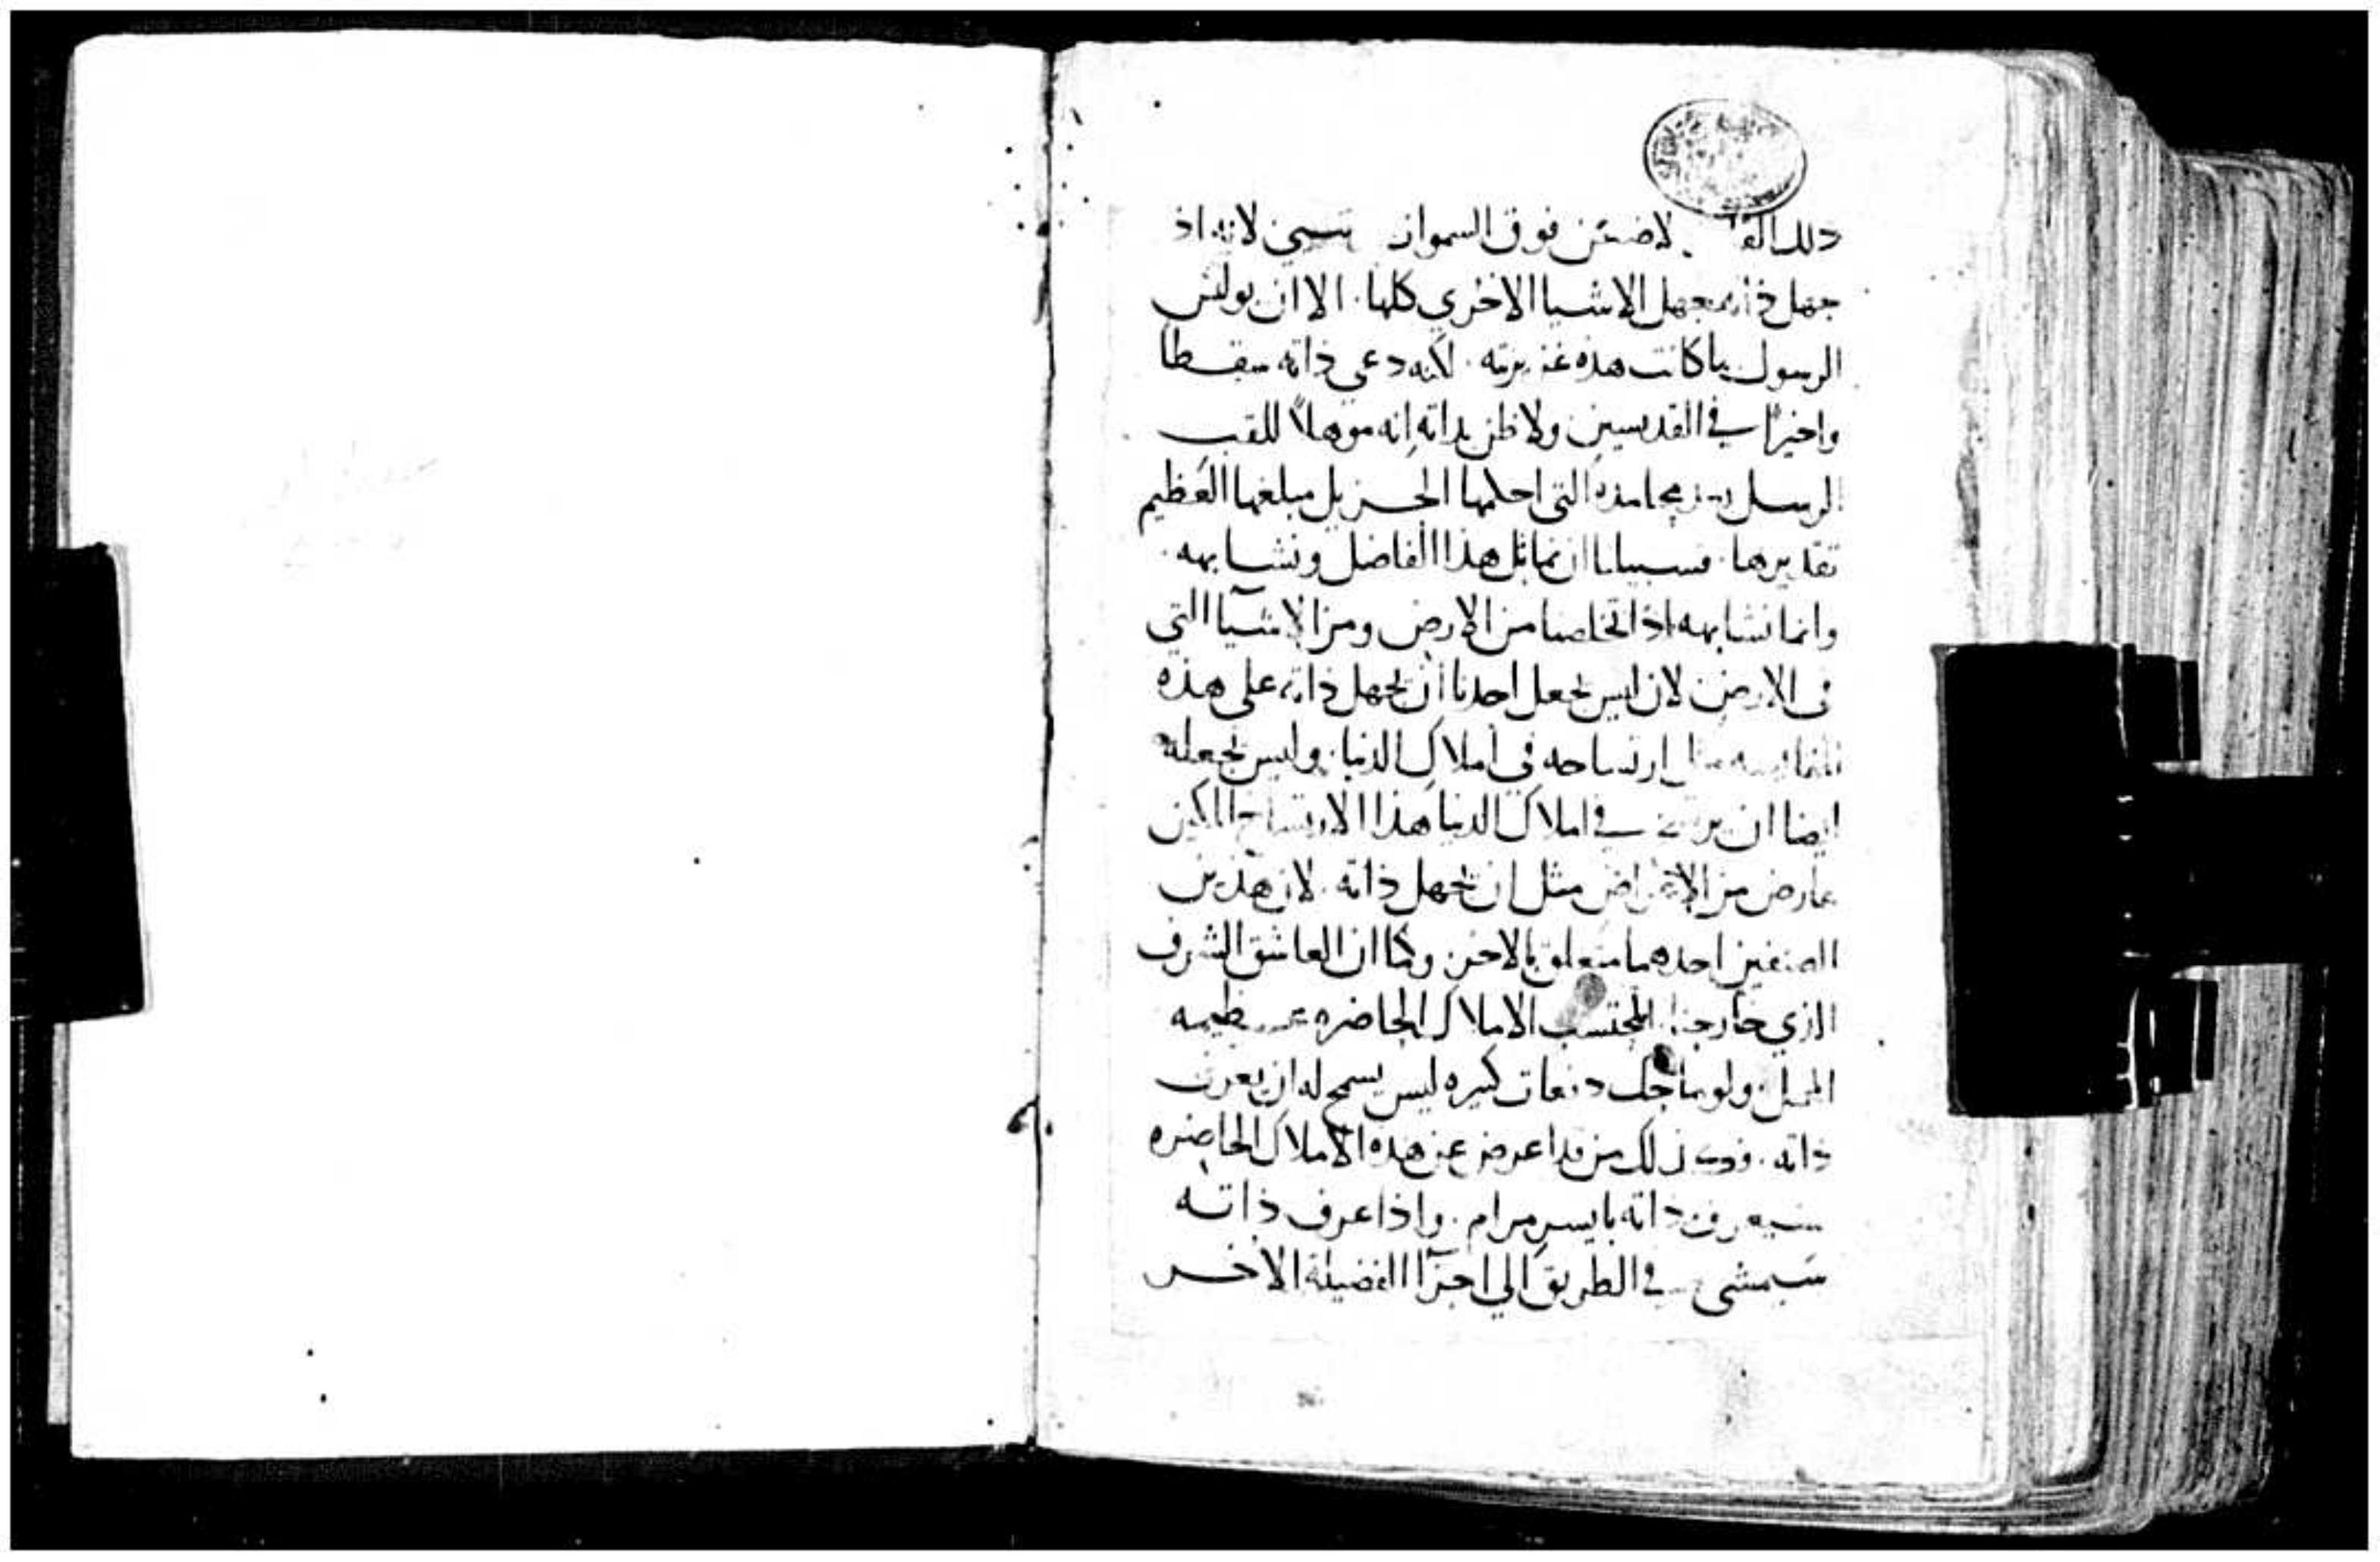 ذلك القا لاضعن فوق السموات نسي لانه اذ
جهل ذاته يجهل الاشيا الاخري كلها . الا ان بولس
الرسول ما كانت هذه غريزته . لكنه دعي ذاته سقطا
واخيرا في القديسين ولا ظن بذاته انه موهلاً للقب
الرسل بعد محامده التي احكمها الجزيل مبلغها العظيم
تقديرها . فسبيلنا ان نماثل هذا الفاضل ونشابهه .
وانما نشابهه اذا تخلصنا من الارض ومن الاشيآ التي
في الارض لان ليس يجعل احدنا ان يجهل ذاته على هذه
مثل ارتساخه في املاك الدنيا . وليس يجعله
ايضا ان في املاك الدنيا هذا الارتساخ المكين
عارض من الاعراض مثل ان يجهل ذاته . لان هذين
الصنفين احدهما متعلق بالاخر وكما ان العاشق الشرف
الذي خارجنا المحتسب الاملاك الحاضره عظيمه
ولو ماحك دفعات كثيره ليس يسمح له ان يعرف
ذاته . فكذلك من قد اعرض عن هذه الاملاك الحاضره
سيعرف ذاته بايسر مرام . واذا عرف ذاته
سيمشي في الطريق الي اجزآ الفضيلة الاخر